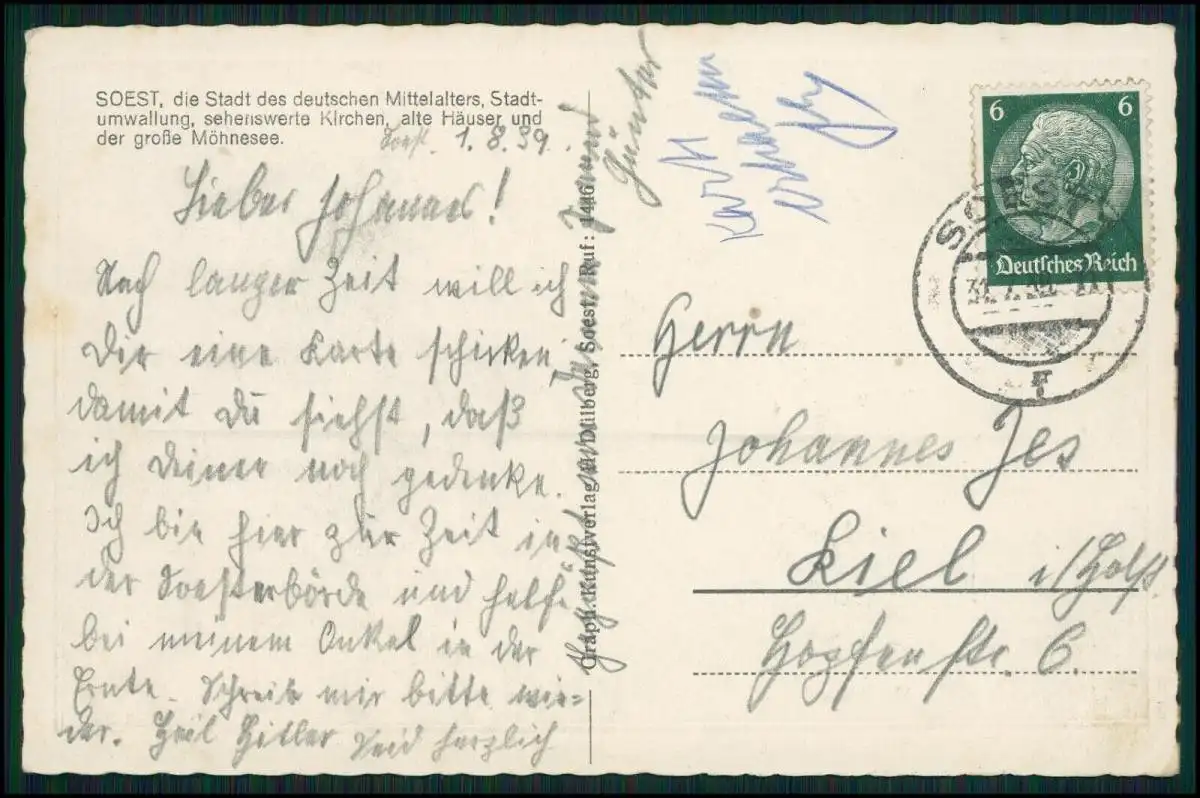 SOEST, die Stadt des deutschen Mittelalters, Stadt-
umwallung, sehenswerte Kirchen, alte Häuser und
der große Möhnesee.
Soest. 1.8.39.
Lieber Johannes!
Nach langer Zeit will ich
Dir eine Karte schicken
damit Du siehst, daß
ich Deiner noch gedenke.
Ich bin hier zur Zeit in
der Soesterbörde und helfe
bei meinem Onkel in der
Ernte. Schreib mir bitte wie=
der. Heil Hitler Seid herzlich
gegrüßt von Deinem
Freund
Günter
Graph. Kunstverlag H. Dülberg, Soest, Ruf: 1486
Karte
6 6
Deutsches Reich
SOEST
Herrn
Johannes Jes
Kiel i/Holst.
Hopfenstr. 6.